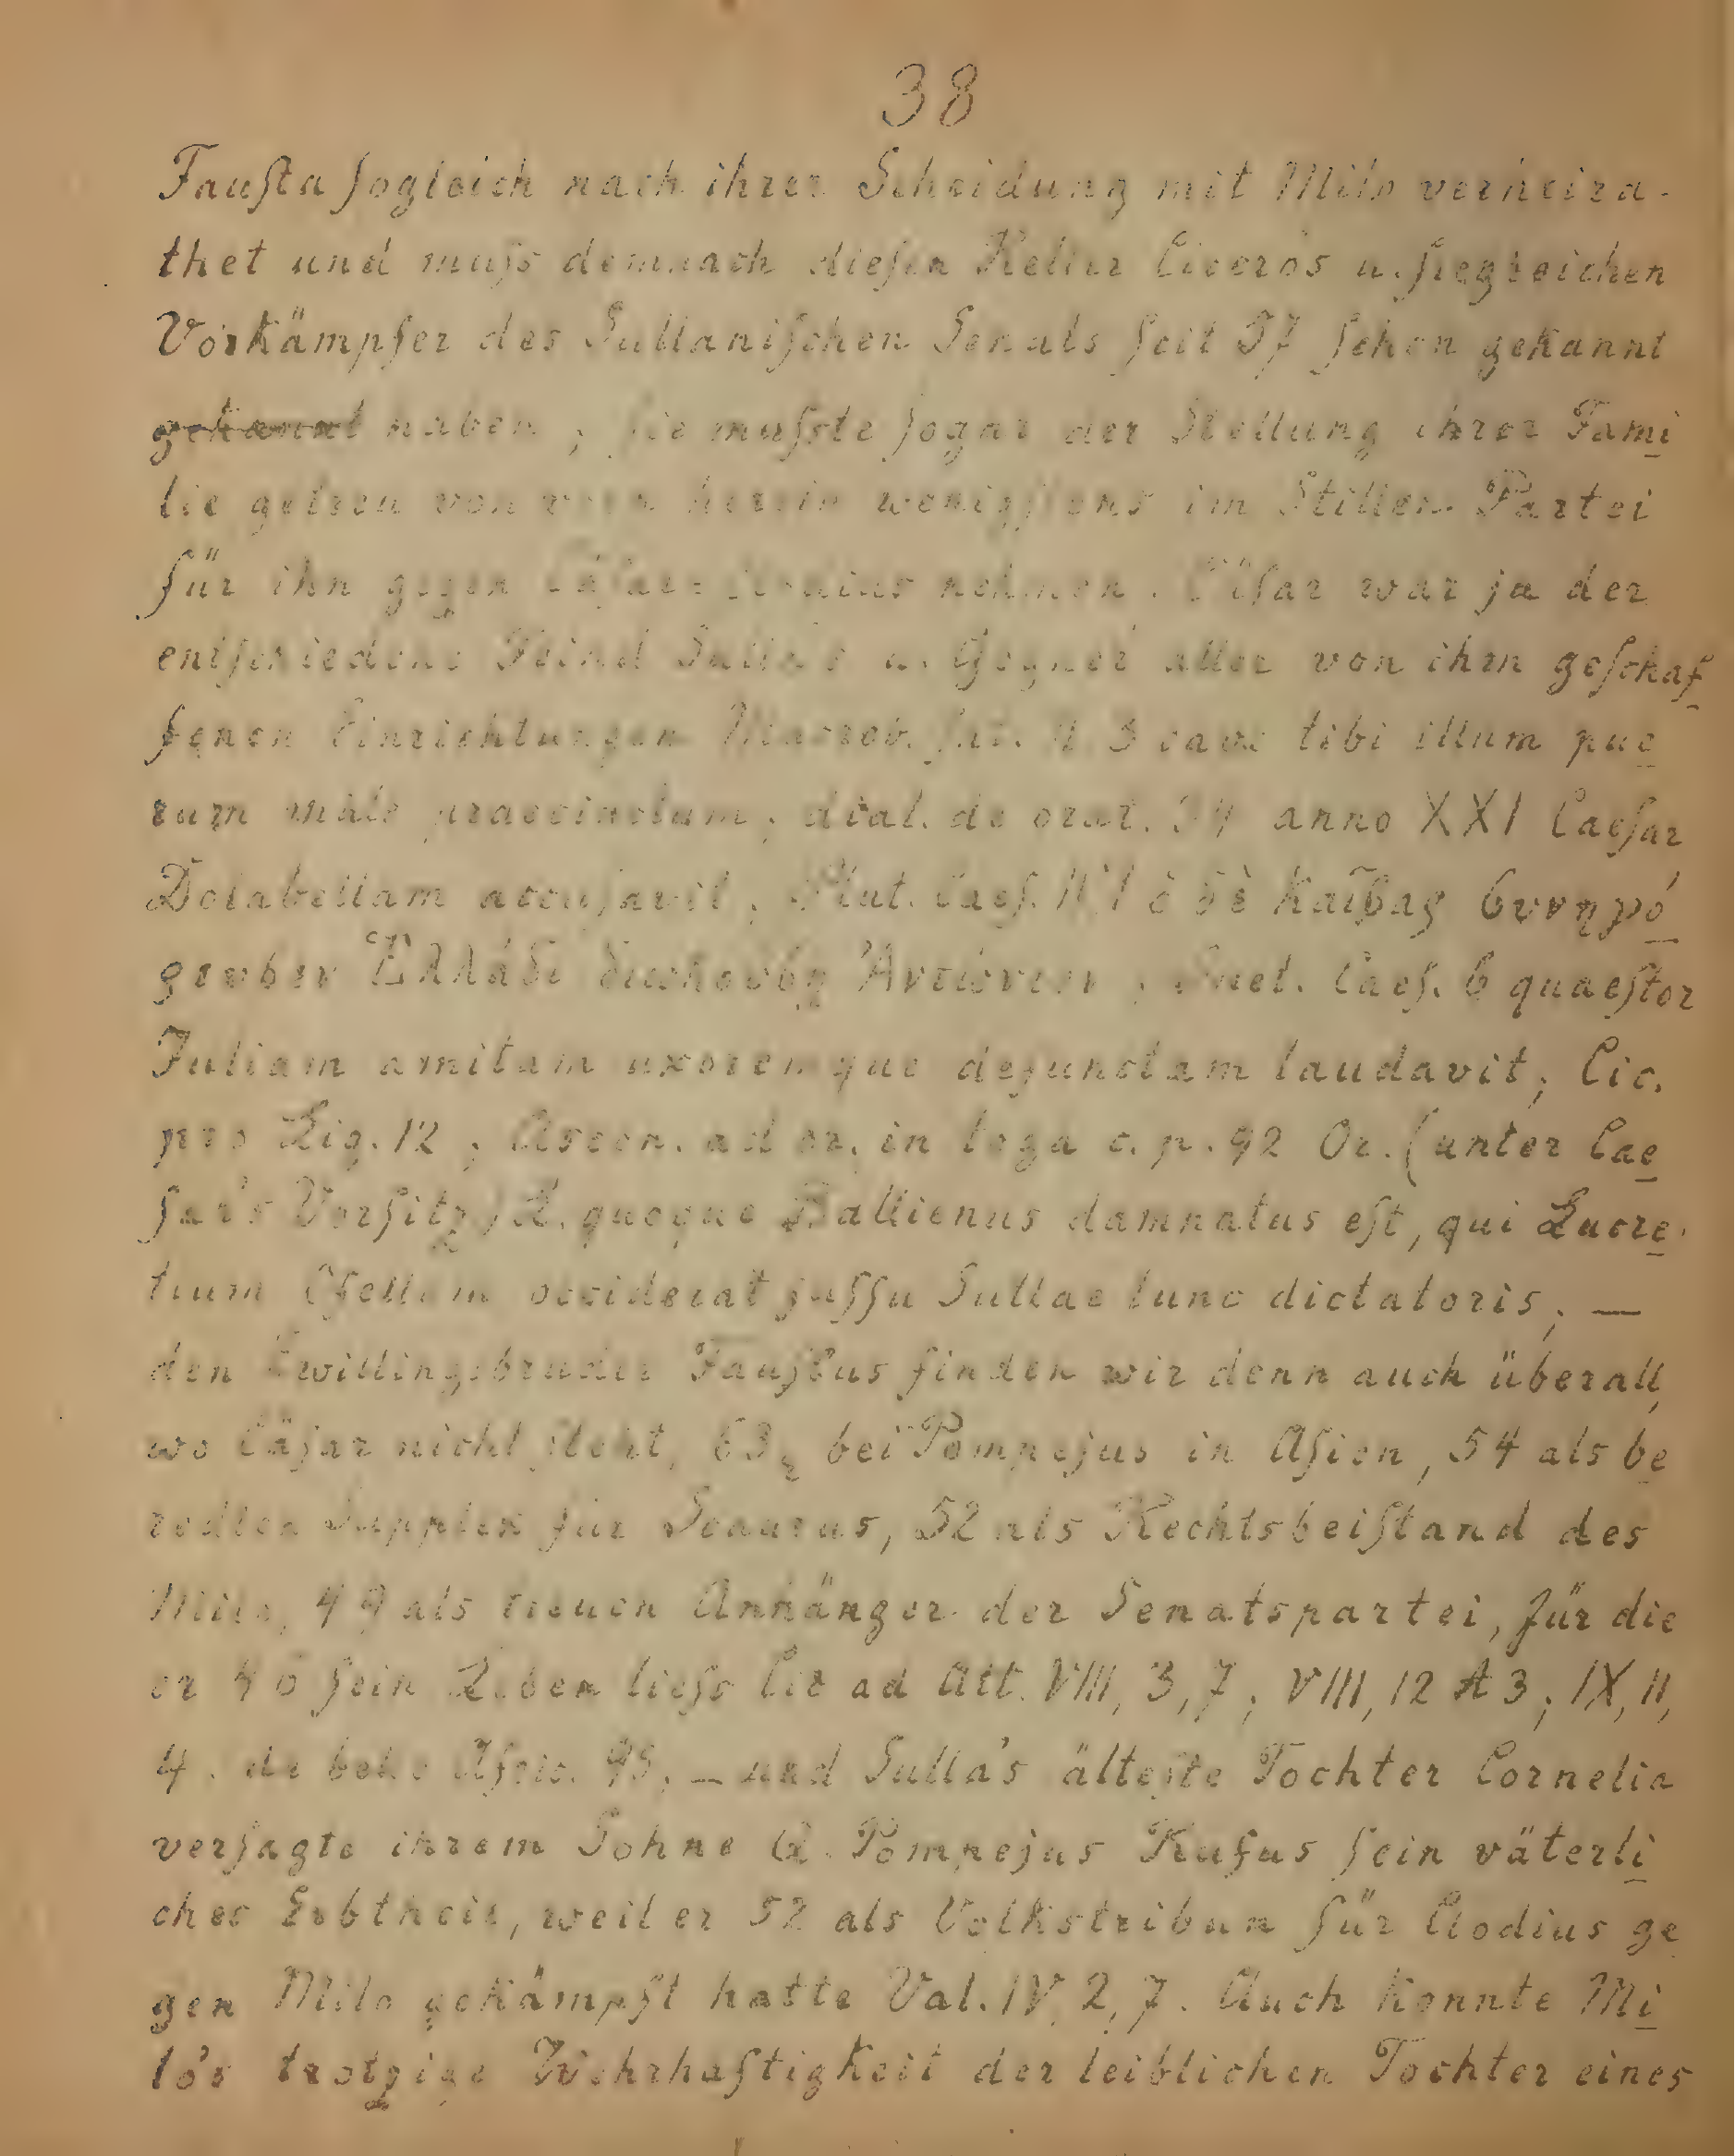 38
Fausta sogleich nach ihrer Scheidung mit Milo verheira-
thet und muss demnach diesen Retter Ciceros u. siegreichen
Vorkämpfer des Sullanischen Senats seit 57 schon gekannt
gekannt haben; sie musste sogar der Stellung ihrer Fami
lie getreu von vorn herein wenigstens im Stillen Partei
für ihn gegen Cäsar= Clodius nehmen. Cäsar war ja der
entschiedene Feind Sulla's u. Gegner aller von ihm geschaf
fenen Einrichtungen Macrob. Sat. II 3 cave tibi illum pue
rum male praecinctum; dial. de orat. 34 anno XXI Caesar
Dolabellam accusavit; Plut. Caes. IV,1 ὁ δὲ Καῖσαρ συνηγό
ρευσεν Ἑλλάδι διωκούσῃ Ἀντώνιον; Suet. Caes. 6 quaestor
Juliam amitam uxoremque defunctam laudavit; Cic.
pro Lig. 12; Ascon. ad or. in toga c. p. 92 Or. (unter Cae
sar's Vorsitz) L. quoque Ballienus damnatus est, qui Lucre
tium Ofellam occiderat jussu Sullae tunc dictatoris; —
den Zwillingsbruder Faustus finden wir denn auch überall,
wo Cäsar nicht steht, 63, bei Pompejus in Asien, 54 als be
redten Supplex für Scaurus, 52 als Rechtsbeistand des
Milo, 49 als treuen Anhänger der Senatspartei, für die
er 46 sein Leben liess Cic ad Att. VIII, 3, 7; VIII, 12 A 3; IX, 11,
4. de bello Afric. 95; — und Sulla's älteste Tochter Cornelia
versagte ihrem Sohne Q. Pompejus Rufus sein väterli
ches Erbtheil, weil er 52 als Volkstribun für Clodius ge
gen Milo gekämpft hatte Val. IV, 2, 7. Auch konnte Mi
lo's trotzige Wehrhaftigkeit der leiblichen Tochter eines